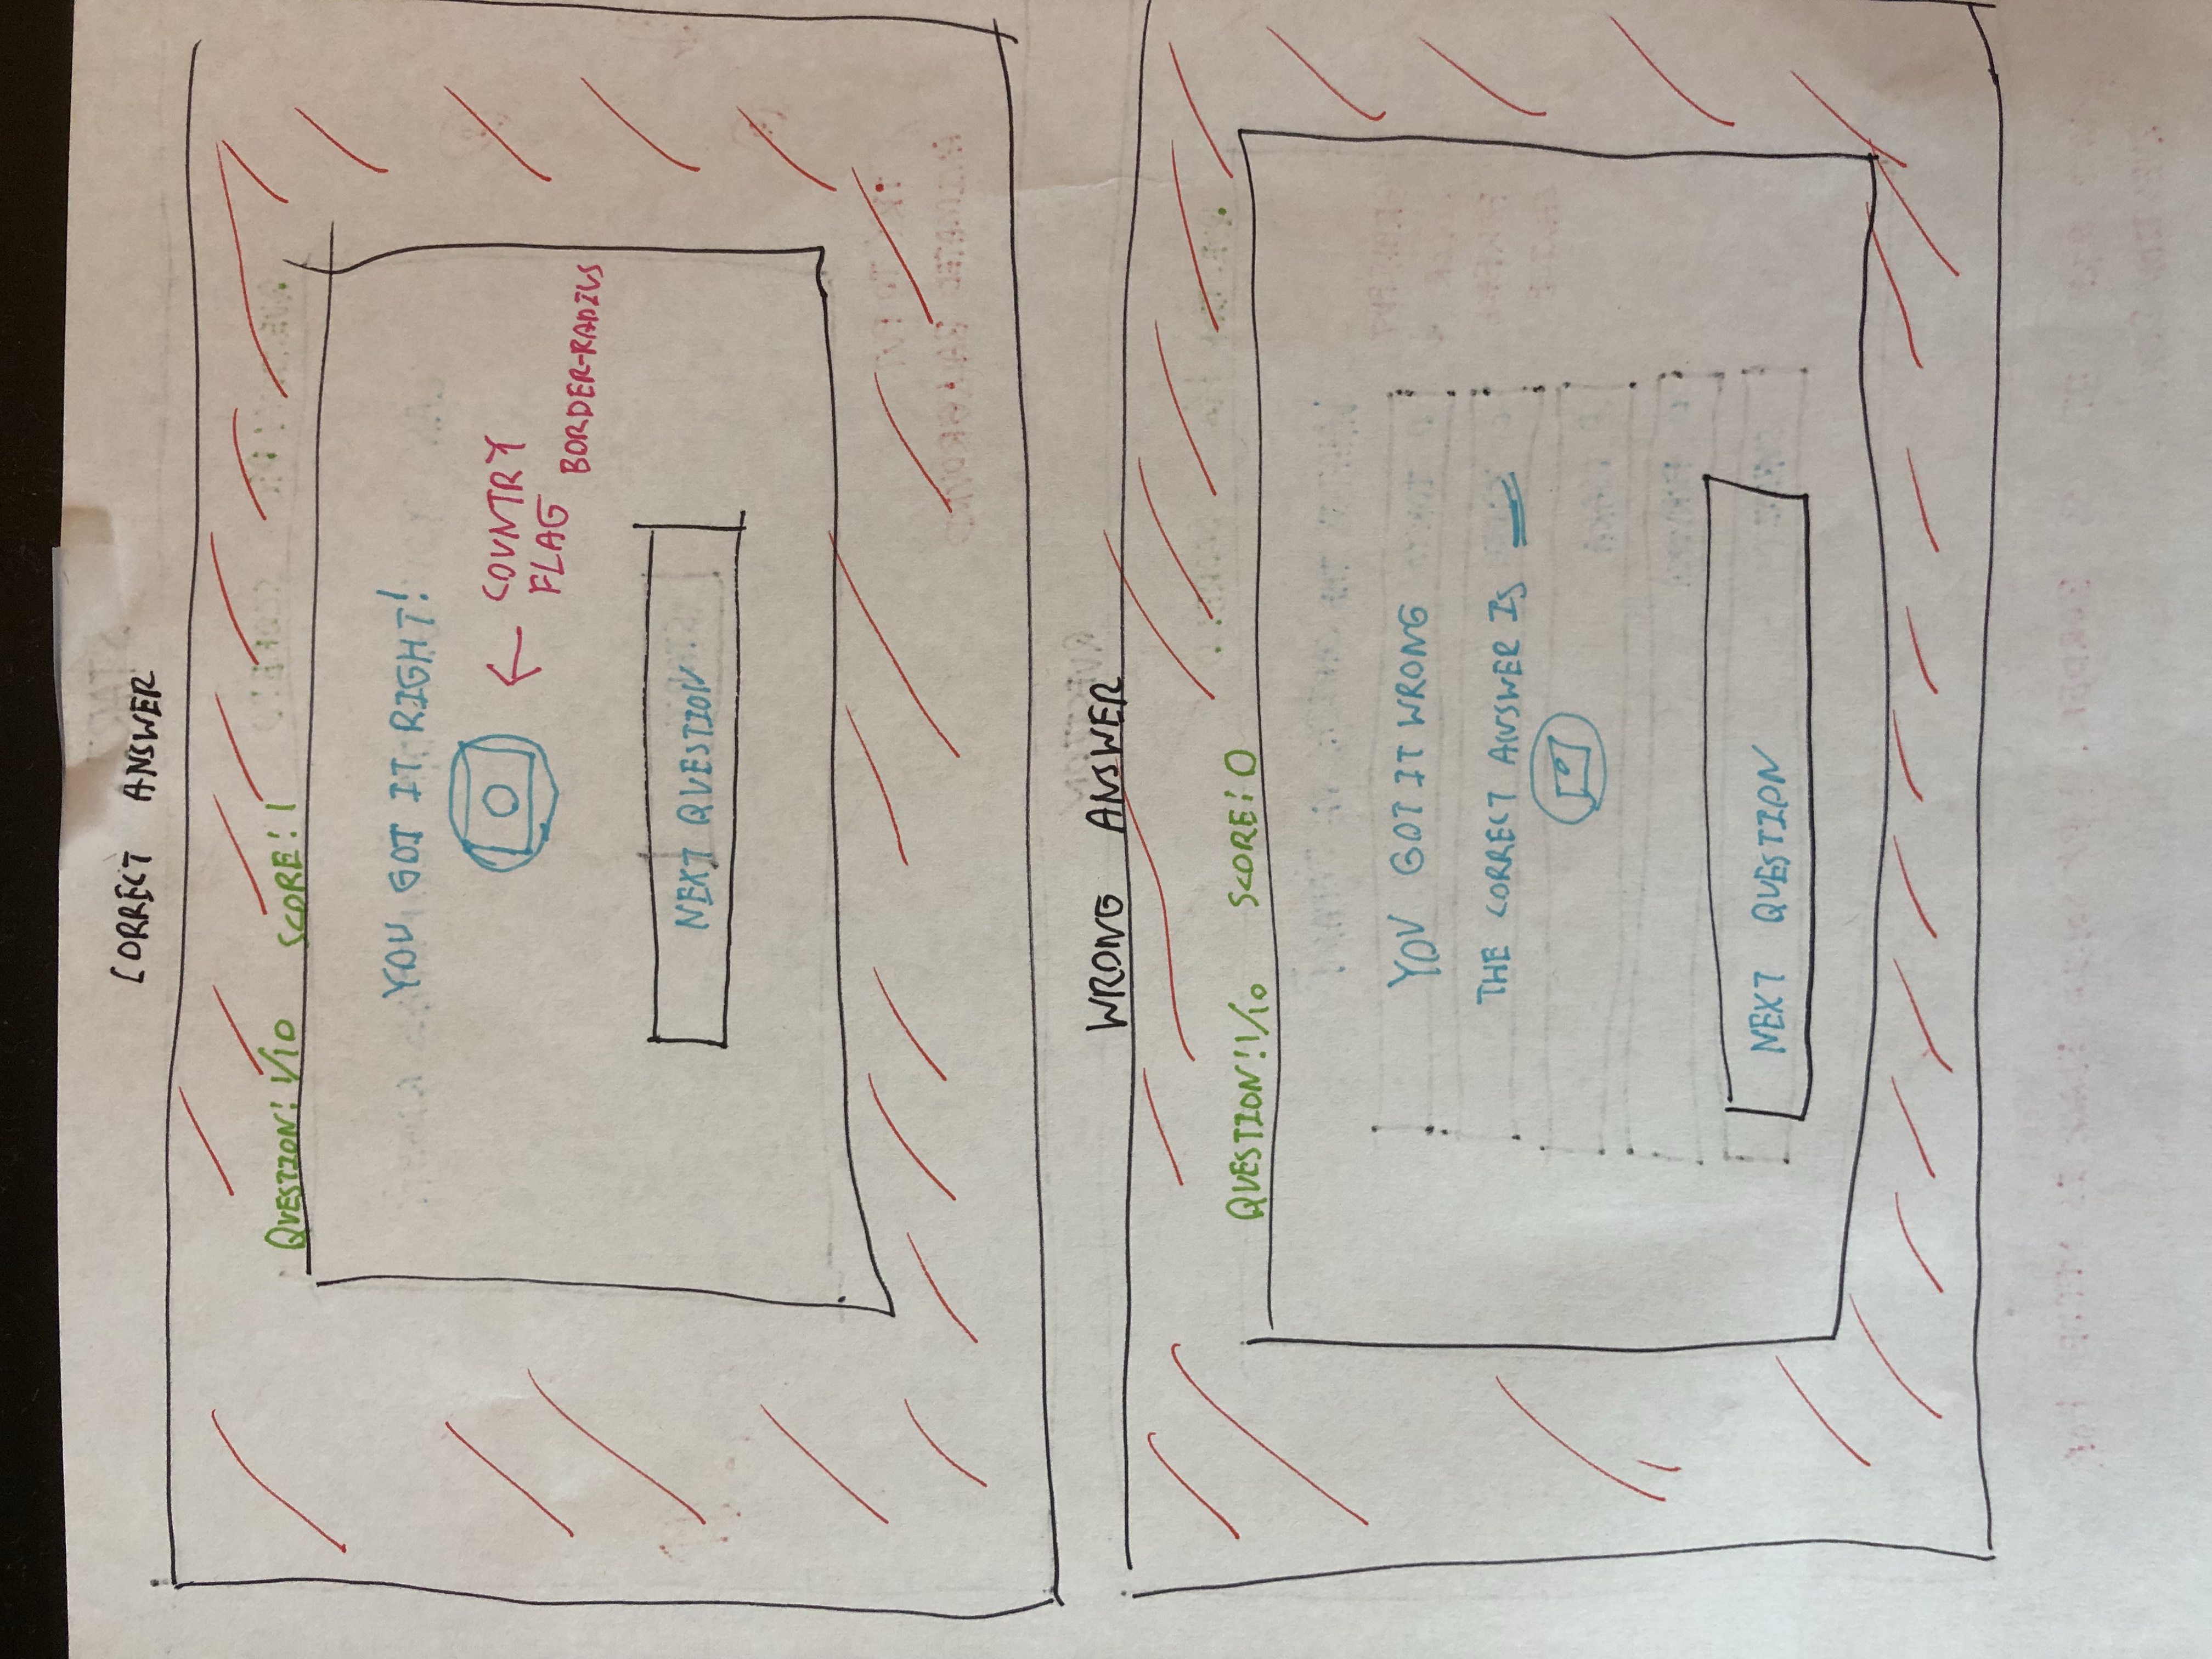 CORRECT ANSWER
QUESTION: 1/10 SCORE: 1
YOU GOT IT RIGHT!
COUNTRY
FLAG
BORDER-RADIUS
NEXT QUESTION
WRONG ANSWER
QUESTION: 1/10 SCORE: 0
YOU GOT IT WRONG
THE CORRECT ANSWER IS
NEXT QUESTION